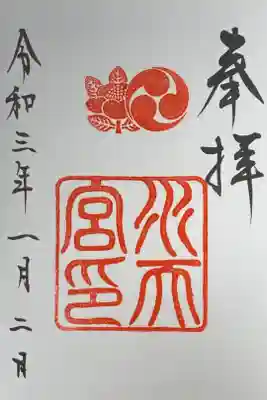 奉拝
水天
宮印
令和三年一月二日